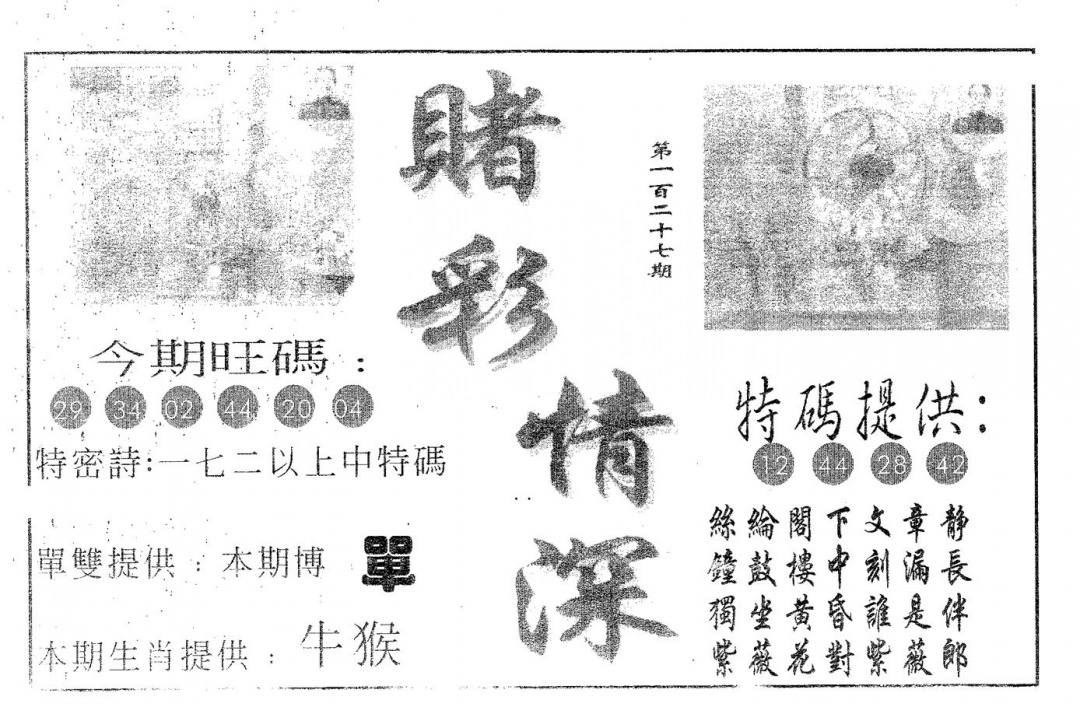 賭彩情深
第一百二十七期
今期旺碼：
29 34 02 44 20 04
特密詩:一七二以上中特碼
單雙提供：本期博 單
本期生肖提供：牛猴
特碼提供:
12 44 28 42
絲綸閣下文章靜
鐘鼓樓中刻漏長
獨坐黃昏誰是伴
紫薇花對紫薇郎